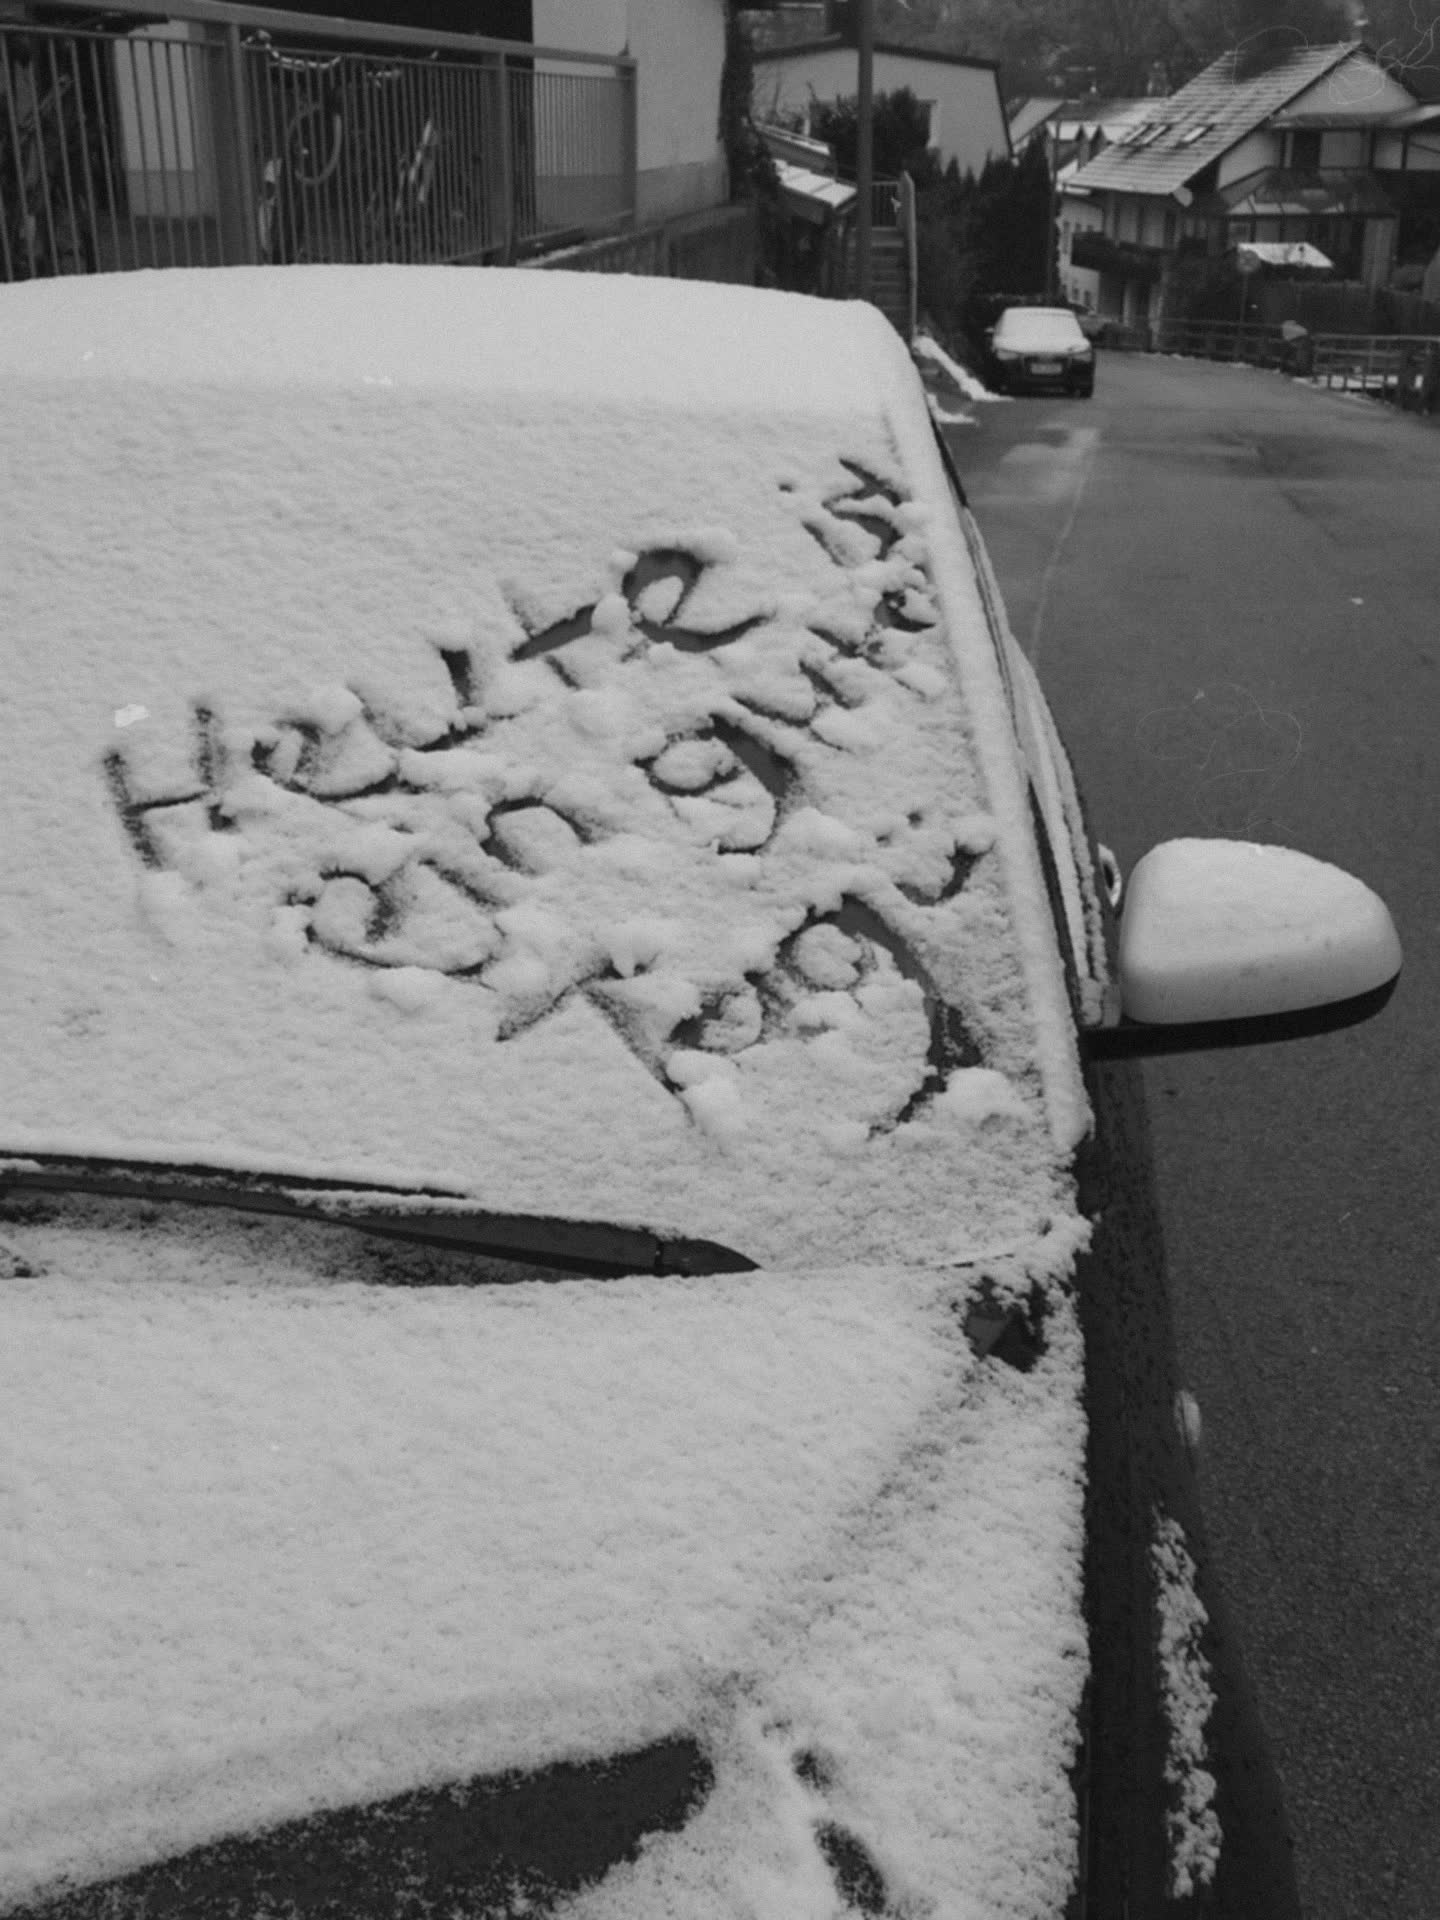 Heute ist
ein guter
Tag :)